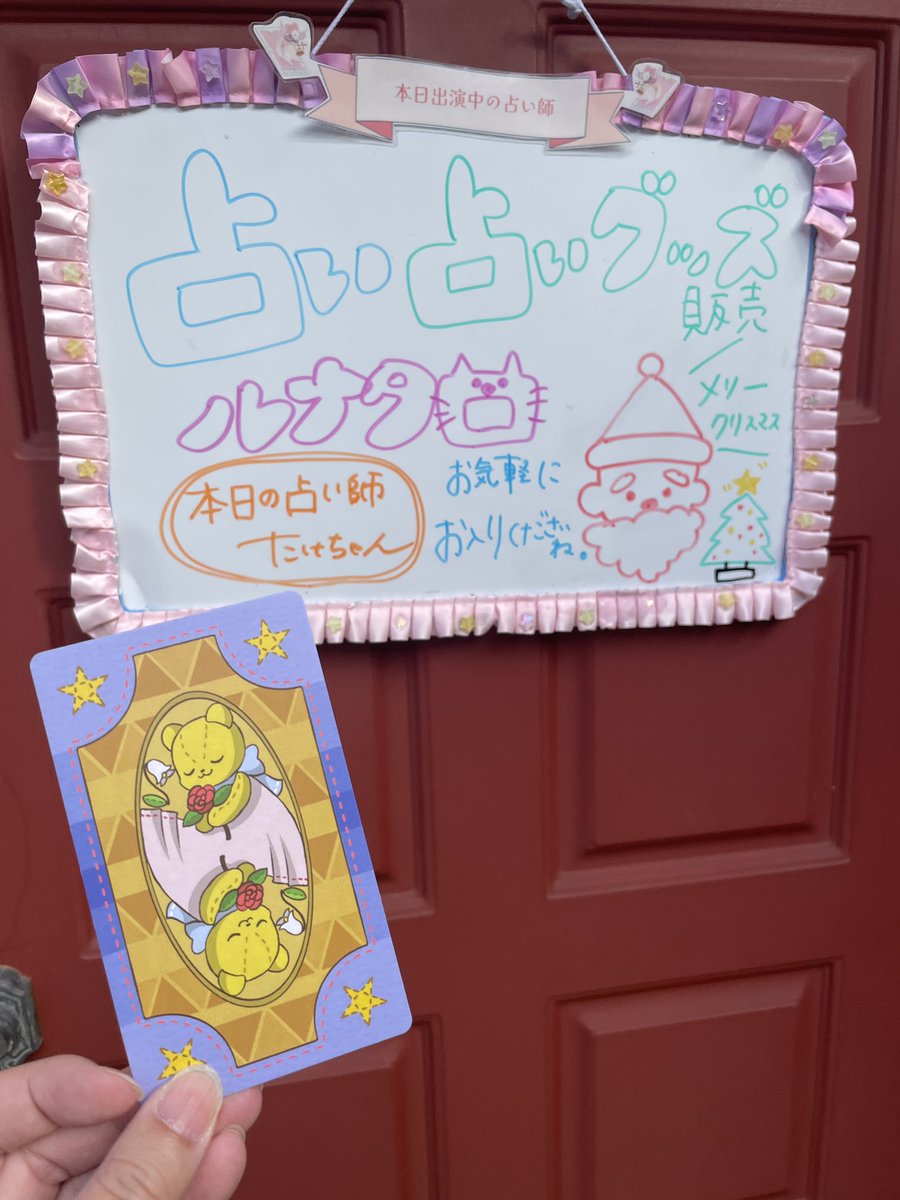 本日出演中の占い師
占い 占いグッズ
販売
ルナタロ
メリー
クリスマス
本日の占い師
たけちゃん
お気軽に
お入りくださいね。